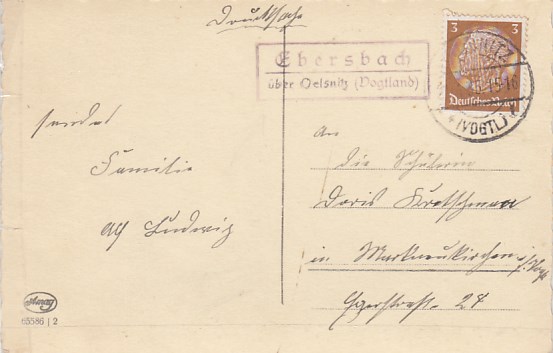 Drucksache
Ebersbach
über Oelsnitz (Vogtland)
3 3
Deutsches Reich
(VOGTL)
sendet
Familie
Ludwig
An
die Schülerin
Doris Kretschmar
in Markneukirchen i/Vogtl.
Egerstraße 24
Amag
65586 | 2